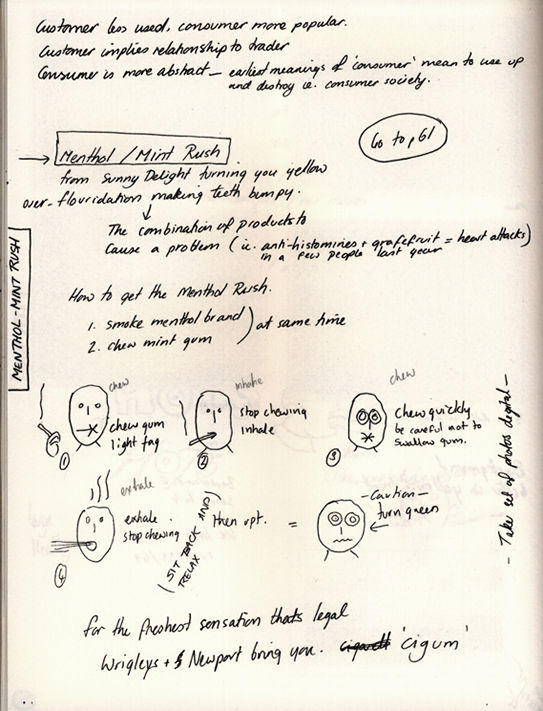 Customer less used, consumer more popular.
Customer implies relationship to trader
Consumer is more abstract – earliest meanings of 'consumer' mean to use up
and destroy ie. consumer society.
Go to p61
→ Menthol / Mint Rush
from Sunny Delight turning you yellow
over-flouridation making teeth bumpy.
↓
The combination of products to
cause a problem (ie. anti-histomines + grafefruit = heart attacks)
in a few people last year
MENTHOL-MINT RUSH
How to get the Menthol Rush.
1. smoke menthol brand
2. chew mint gum
) at same time
chew
chew gum
light fag
1
inhale
stop chewing
inhale
2
chew
Chew quickly
be careful not to
swallow gum.
3
- Take set of photos digital -
exhale
exhale.
stop chewing
4
(SIT BACK AND
RELAX)
then rpt.
=
- Caution -
turn green
for the freshest sensation thats legal
Wrigleys + Newport bring you. 'cigum'